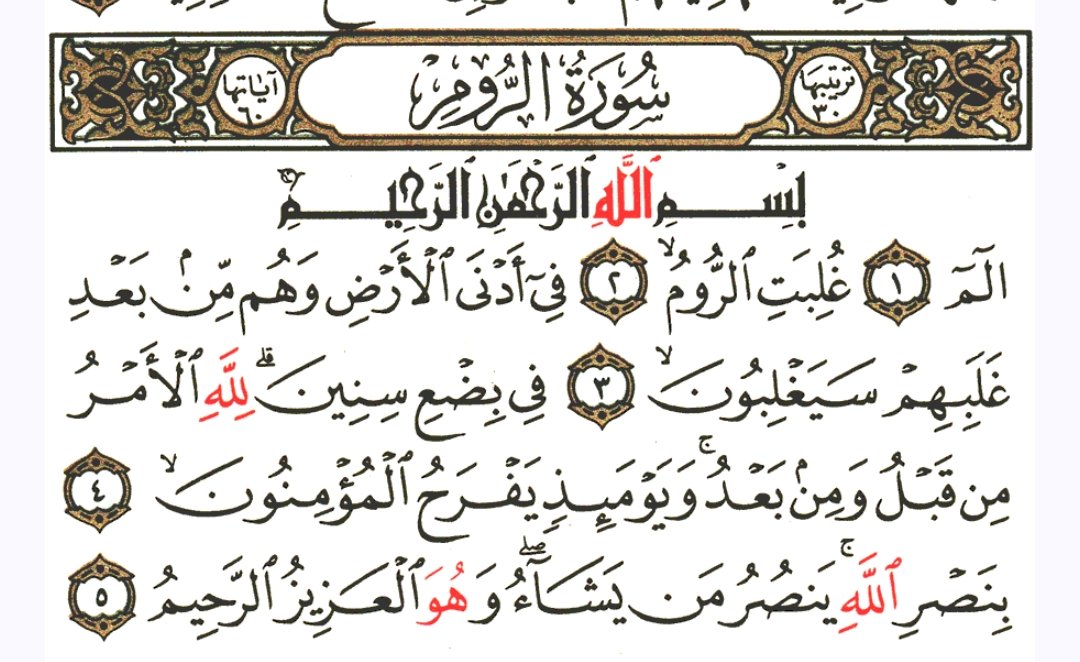 ترتيبها ٣٠ سُورَةُ الرُّومِ آيَاتها ٦٠
بِسْمِ ٱللَّهِ ٱلرَّحْمَٰنِ ٱلرَّحِيمِ
الٓمٓ ١ غُلِبَتِ ٱلرُّومُ ۙ ٢ فِىٓ أَدْنَى ٱلْأَرْضِ وَهُم مِّنۢ بَعْدِ
غَلَبِهِمْ سَيَغْلِبُونَ ۙ ٣ فِى بِضْعِ سِنِينَ ۗ لِلَّهِ ٱلْأَمْرُ
مِن قَبْلُ وَمِنۢ بَعْدُ ۚ وَيَوْمَئِذٍ يَفْرَحُ ٱلْمُؤْمِنُونَ ۙ ٤
بِنَصْرِ ٱللَّهِ ۚ يَنصُرُ مَن يَشَآءُ ۖ وَهُوَ ٱلْعَزِيزُ ٱلرَّحِيمُ ٥